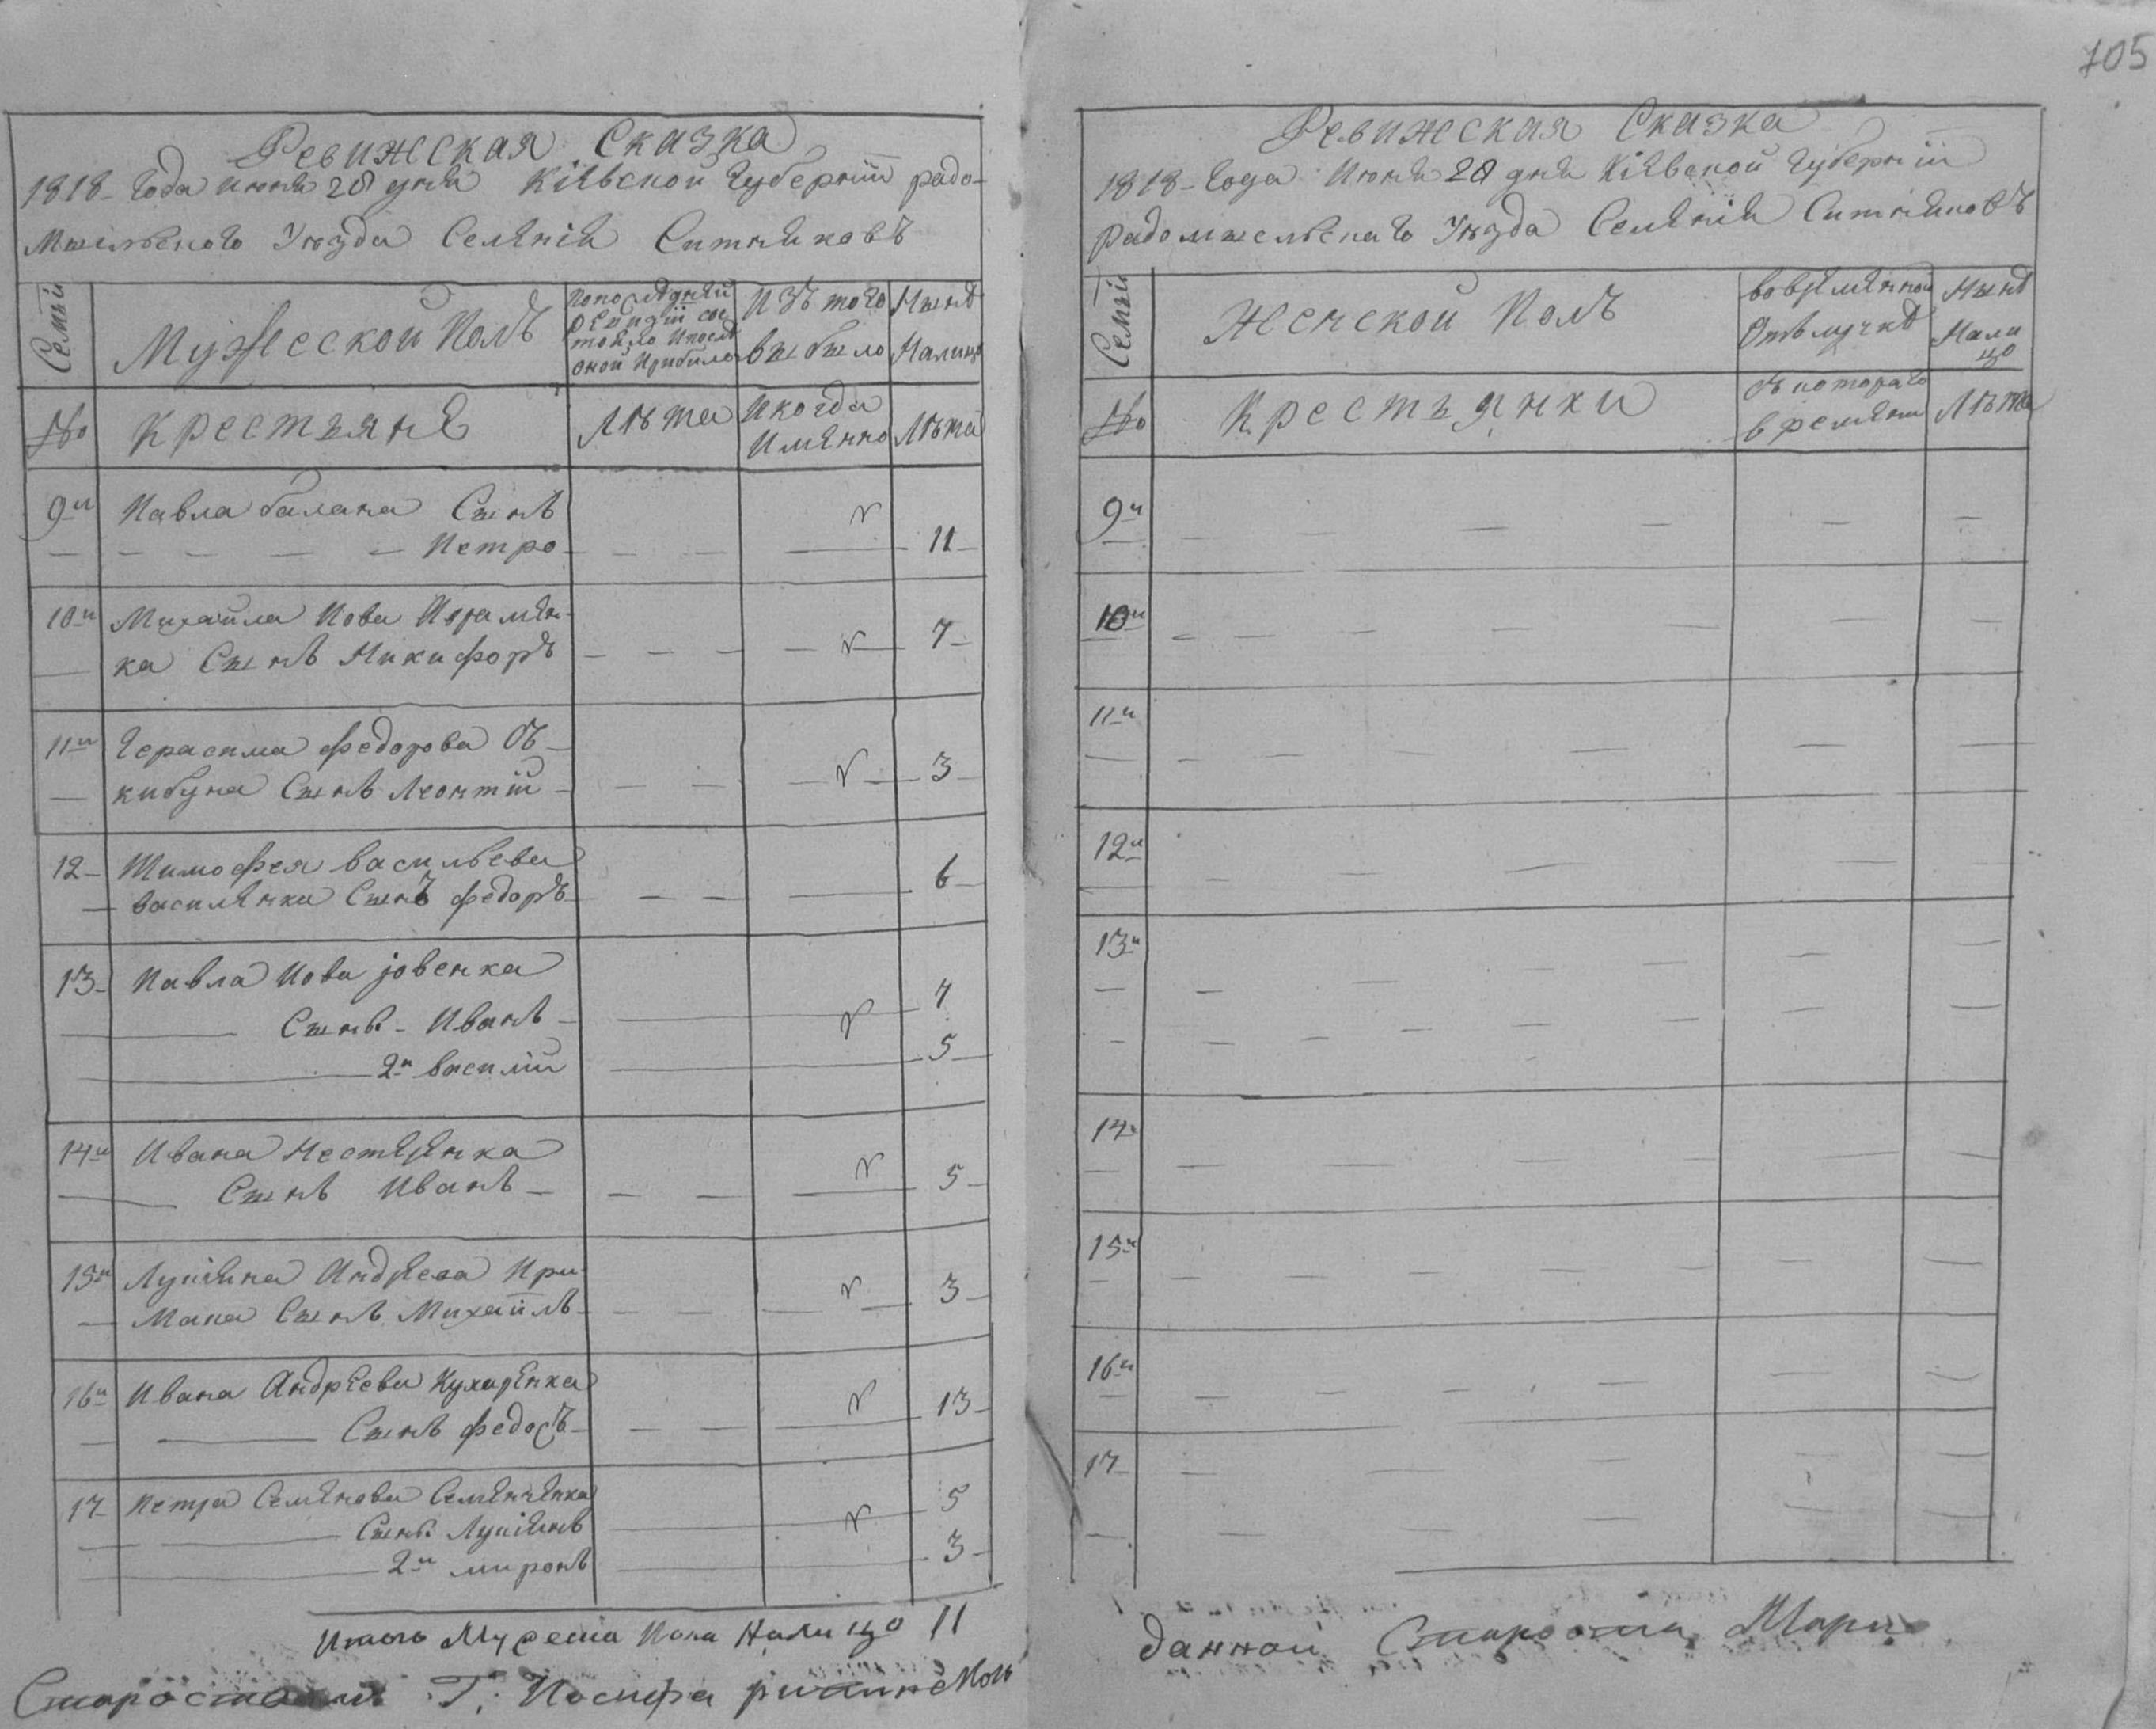 105
Ревижская Сказка
1818 года июня 20 дня Кіевской губерніи радо-
мышльского Уезда Селенія Ситняковъ
Семьи
Мужеской Полъ
По последней ревизіи состояло и после оной прибыло
Изъ того выбыло
Ныне налицо
№
Крестьяне
Лѣта
И когда именно
Лѣта
9й Павла балана Сынъ
Петро 11
10й Михайла Иова Аврамен-
ка Сынъ Никифоръ 7
11й Герасима федорова
Сынъ Леонтій 3
12 Тимофея васильева
василенка Сынъ федоръ 6
13 Павла Иова јовенка
Сынъ Иванъ 7
2й василій 5
14й Ивана Нестеренка
Сынъ Иванъ 5
15й Лукіяна Андреева При-
мака Сынъ Михайлъ 3
16й Ивана Андреева Кухаренка
Сынъ федосъ 13
17 Петра Семенова Семенченка
Сынъ Лукіянъ 5
2й миронъ 3
Итого Мужеска Пола Налицо 11
Г. Иосифа
Ревижская Сказка
1818 года Июня 20 дня Кіевской губерніи
радомышельскаго Уезда Селенія Ситняковъ
Семьи
Женской Полъ
Во временной отлучке
Ныне нали
цо
№
Крестьянки
Съ котораго времени
Лѣта
9й
10й
11й
12й
13й
14й
15й
16й
17
данной Староста